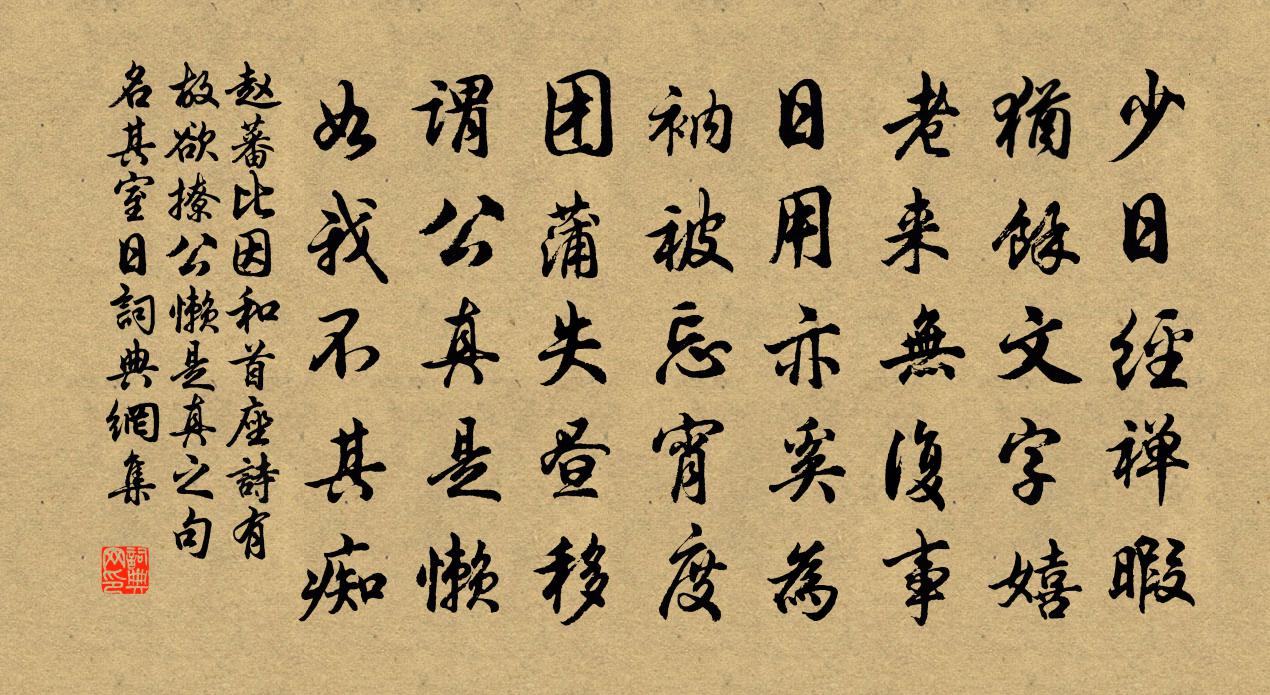 少日經禅暇
猶餘文字嬉
老来無復事
日用亦奚為
衲被忘宵度
团蒲失昼移
謂公真是懒
如我不其痴
赵蕃比因和首座詩有
故欲撩公懒是真之句
名其室日詞典網集
詞典
网印